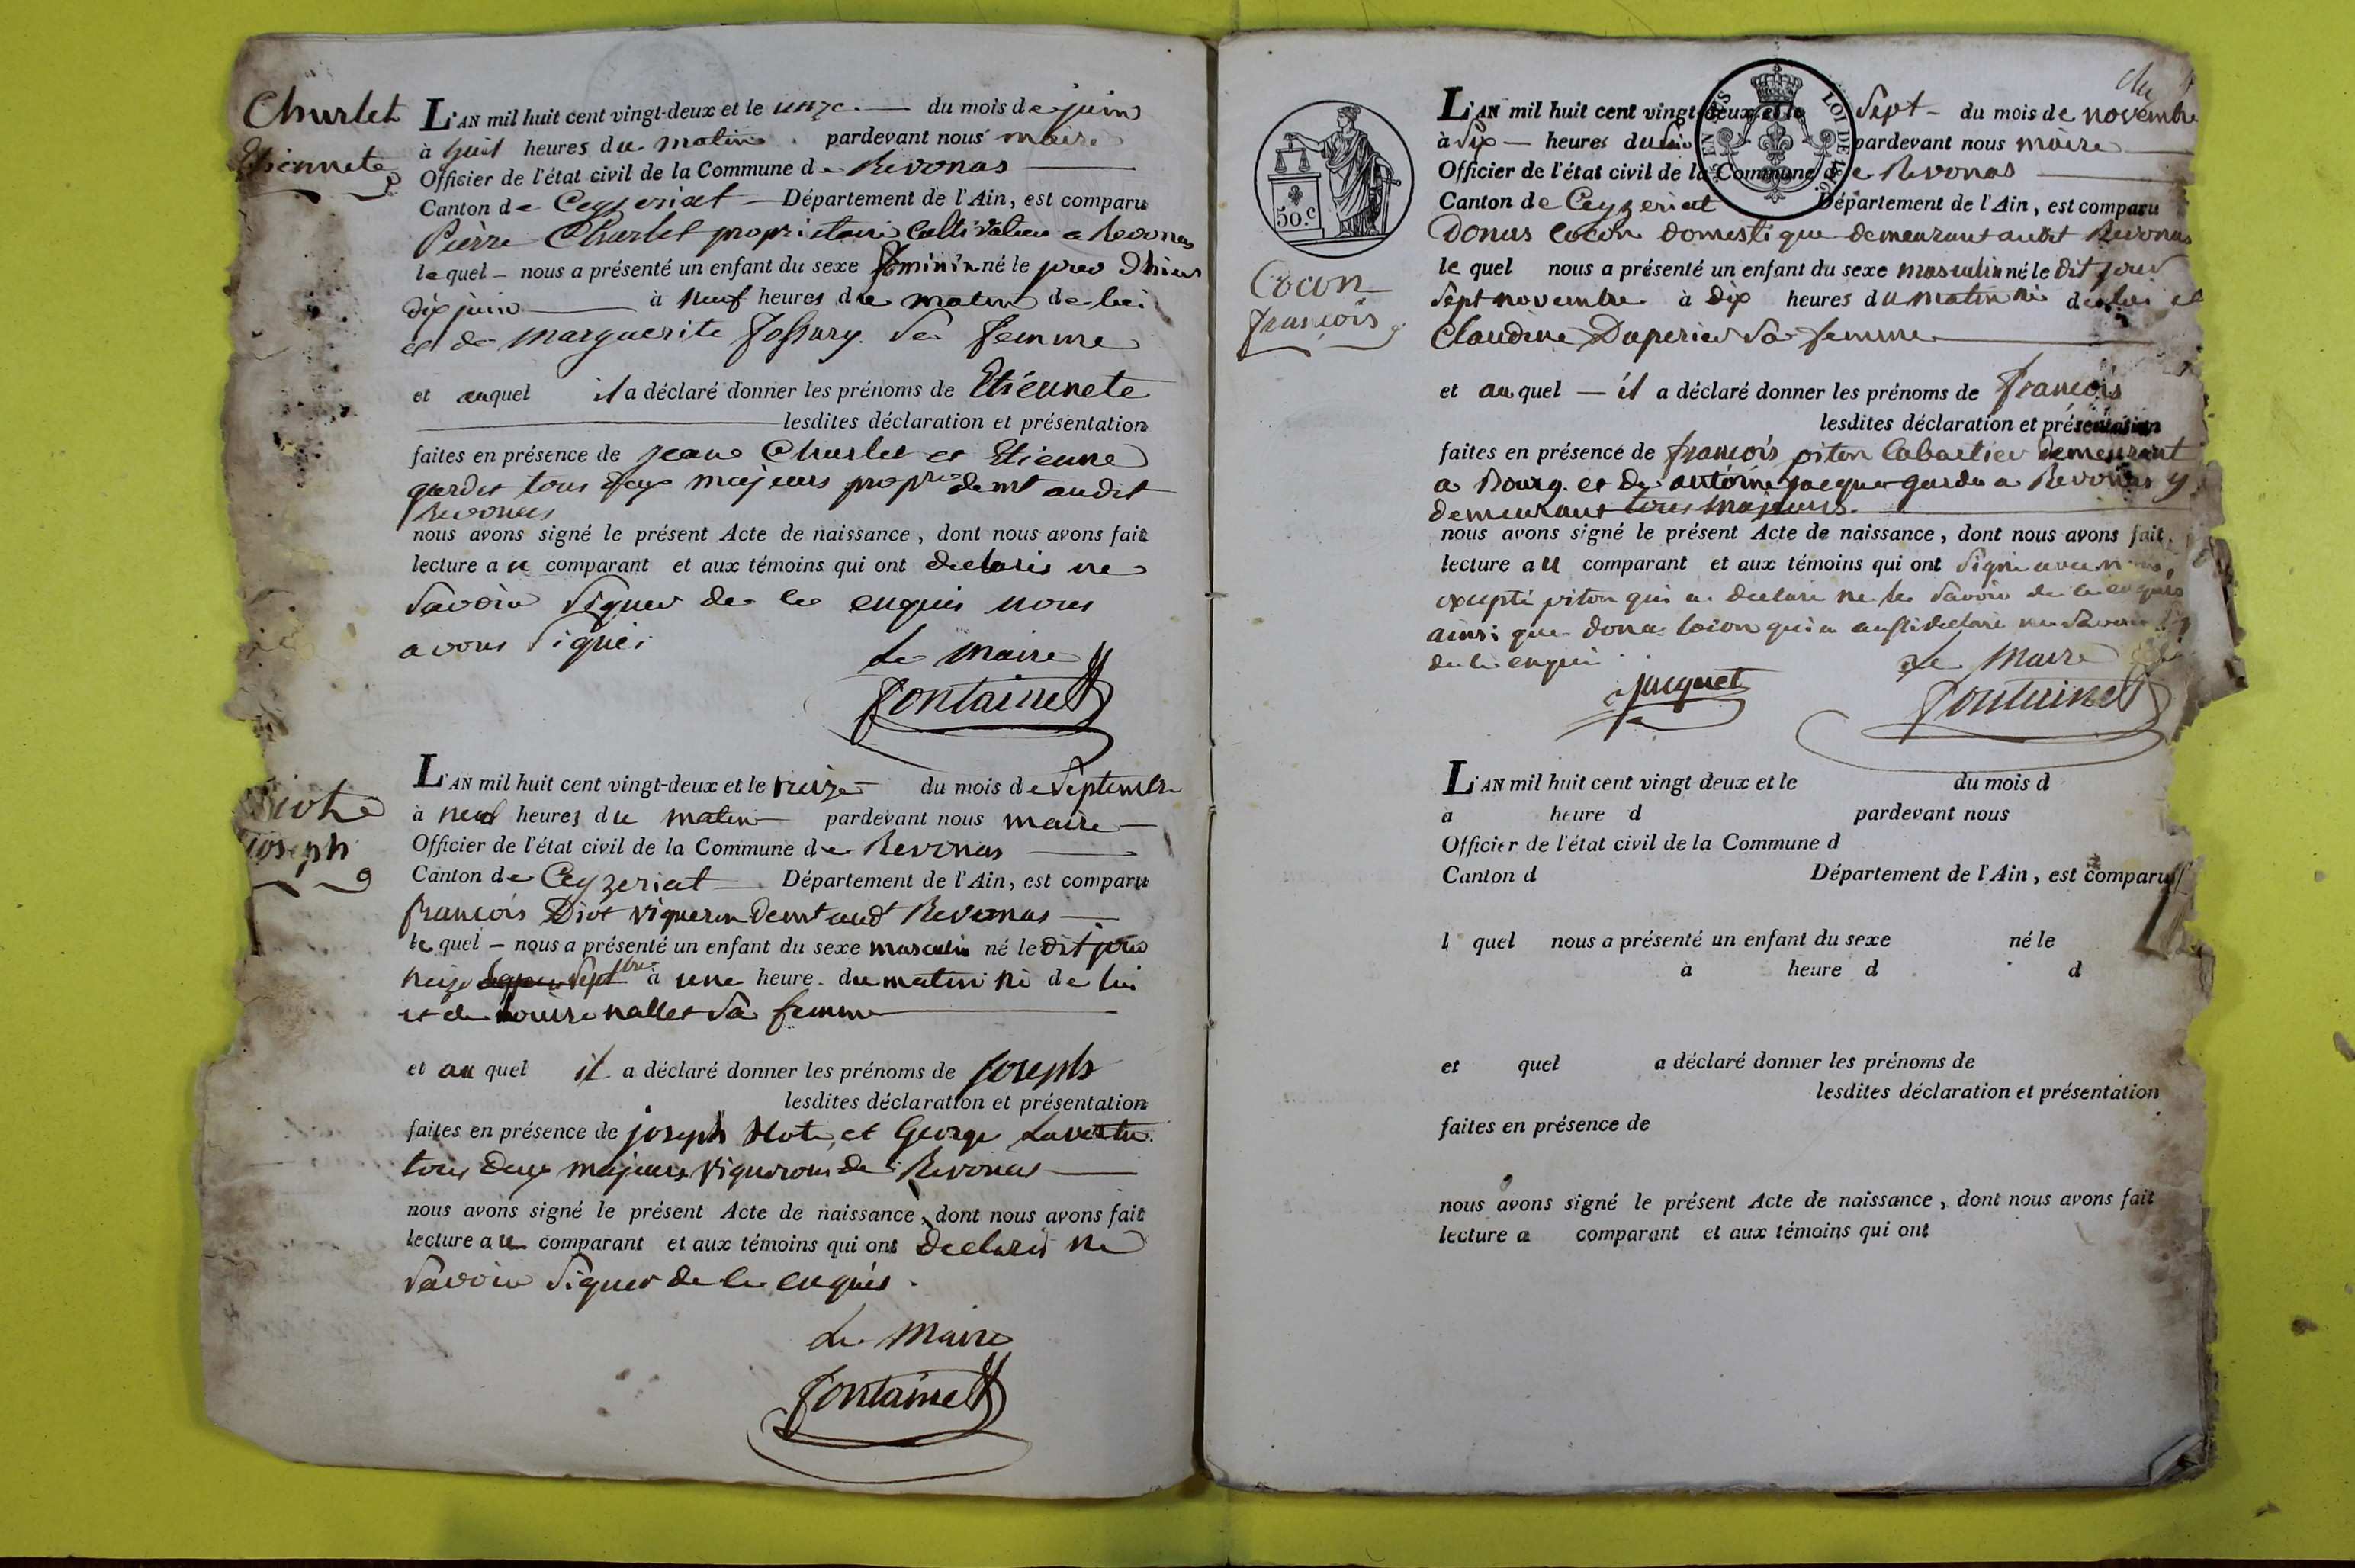 Churlet
Etiennete
L'AN mil huit cent vingt-deux et le unze du mois de juin
à huit heures du matin pardevant nous maire
Officier de l'état civil de la Commune de Revonas
Canton de Ceyzeriat Département de l'Ain, est comparu
Pierre Churlet proprietaire Cultivateur a Revonas
le quel nous a présenté un enfant du sexe feminin né le jour Dhier
dix juin à neuf heures du matin de lui
et de marguerite sa femme
et auquel il a déclaré donner les prénoms de Etiennete
lesdites déclaration et présentation
faites en présence de jean Churlet et Etienne
tous deux majeurs propres demt audit
Revonas
nous avons signé le présent Acte de naissance, dont nous avons fait
lecture au comparant et aux témoins qui ont declaré ne
savoir signer de ce enquis nous
avons signé
Le maire
fontaine
Joseph
L'AN mil huit cent vingt-deux et le treize du mois de Septembre
à neuf heures du matin pardevant nous maire
Officier de l'état civil de la Commune de Revonas
Canton de Ceyzeriat Département de l'Ain, est comparu
francois Diot vigneron demt audt Revonas
le quel nous a présenté un enfant du sexe masculin né le dit jour
treize Septbre à une heure du matin né de lui
et de Louise sa femme
et au quel il a déclaré donner les prénoms de Joseph
lesdites déclaration et présentation
faites en présence de joseph et George
tous deux majeurs vignerons de Revonas
nous avons signé le présent Acte de naissance, dont nous avons fait
lecture au comparant et aux témoins qui ont declaré ne
savoir signer de ce enquis.
Le Maire
fontaine
50.c
LOI DE 1816.
Cocon
françois
L'AN mil huit cent vingt-deux et le Sept du mois de novembre
à dix heures du pardevant nous maire
Officier de l'état civil de la Commune de Revonas
Canton de Ceyzeriat Département de l'Ain, est comparu
Donas Cocon domestique demeurant audit Revonas
le quel nous a présenté un enfant du sexe masculin né le dit jour
Sept novembre à dix heures du matin né de lui et
Claudine Duperier sa femme
et au quel il a déclaré donner les prénoms de François
lesdites déclaration et présentation
faites en présence de françois piton Cabartier demeurant
a Bourg et de antoine jacquet garde a Revonas y
demeurant tous majeurs.
nous avons signé le présent Acte de naissance, dont nous avons fait
lecture au comparant et aux témoins qui ont signé avec nous,
excepté piton qui a declaré ne le savoir de ce enquis
ainsi que donas Cocon qui a aussi declaré ne savoir
de ce enquis
Le Maire
jacquet
fontaine
L'AN mil huit cent vingt deux et le du mois d
a heure d pardevant nous
Officier de l'état civil de la Commune d
Canton d Département de l'Ain, est comparu
l quel nous a présenté un enfant du sexe né le
à heure d d
et quel a déclaré donner les prénoms de
lesdites déclaration et présentation
faites en présence de
nous avons signé le présent Acte de naissance, dont nous avons fait
lecture a comparant et aux témoins qui ont